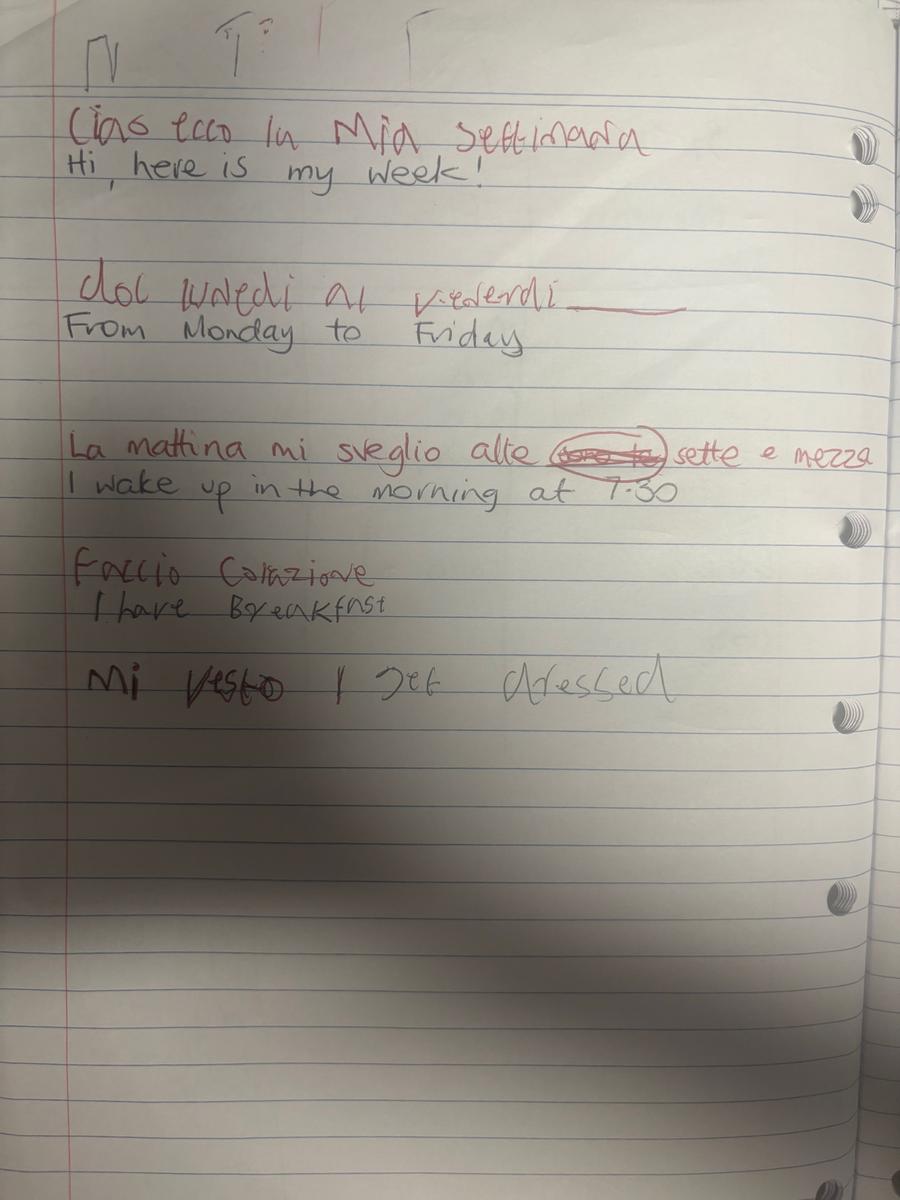 Ciao ecco la Mia settimana
Hi, here is my week!
dal lunedi al venerdi
From Monday to Friday
La mattina mi sveglio alle sette e mezza
I wake up in the morning at 7.30
Faccio Colazione
I have Breakfast
Mi vesto I get dressed